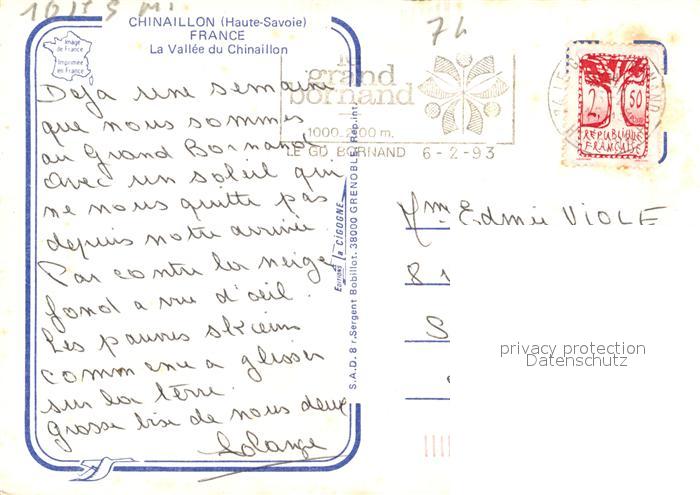 CHINAILLON (Haute-Savoie)
FRANCE
La Vallée du Chinaillon
Image
de France
Imprimée
en France
74
le
grand
bornand
1000-2100 m.
LE GD BORNAND 6-2-93
2,50
REPUBLIQUE
FRANÇAISE
Deja une semaine
que nous sommes
au Grand Bornand
avec un soleil qui
ne nous quitte pas
depuis notre arrivée.
Par contre la neige
fond a vue d'oeil.
Les pauvres skieurs
commence a glisser
sur la terre.
grosse bise de nous deux
Solange
Editions la CIGOGNE
S.A.D. 8 r. Sergent Bobillot. 38000 GRENOBLE. Rep. int.
Mm Edmée VIOLE
8
S
privacy protection
Datenschutz